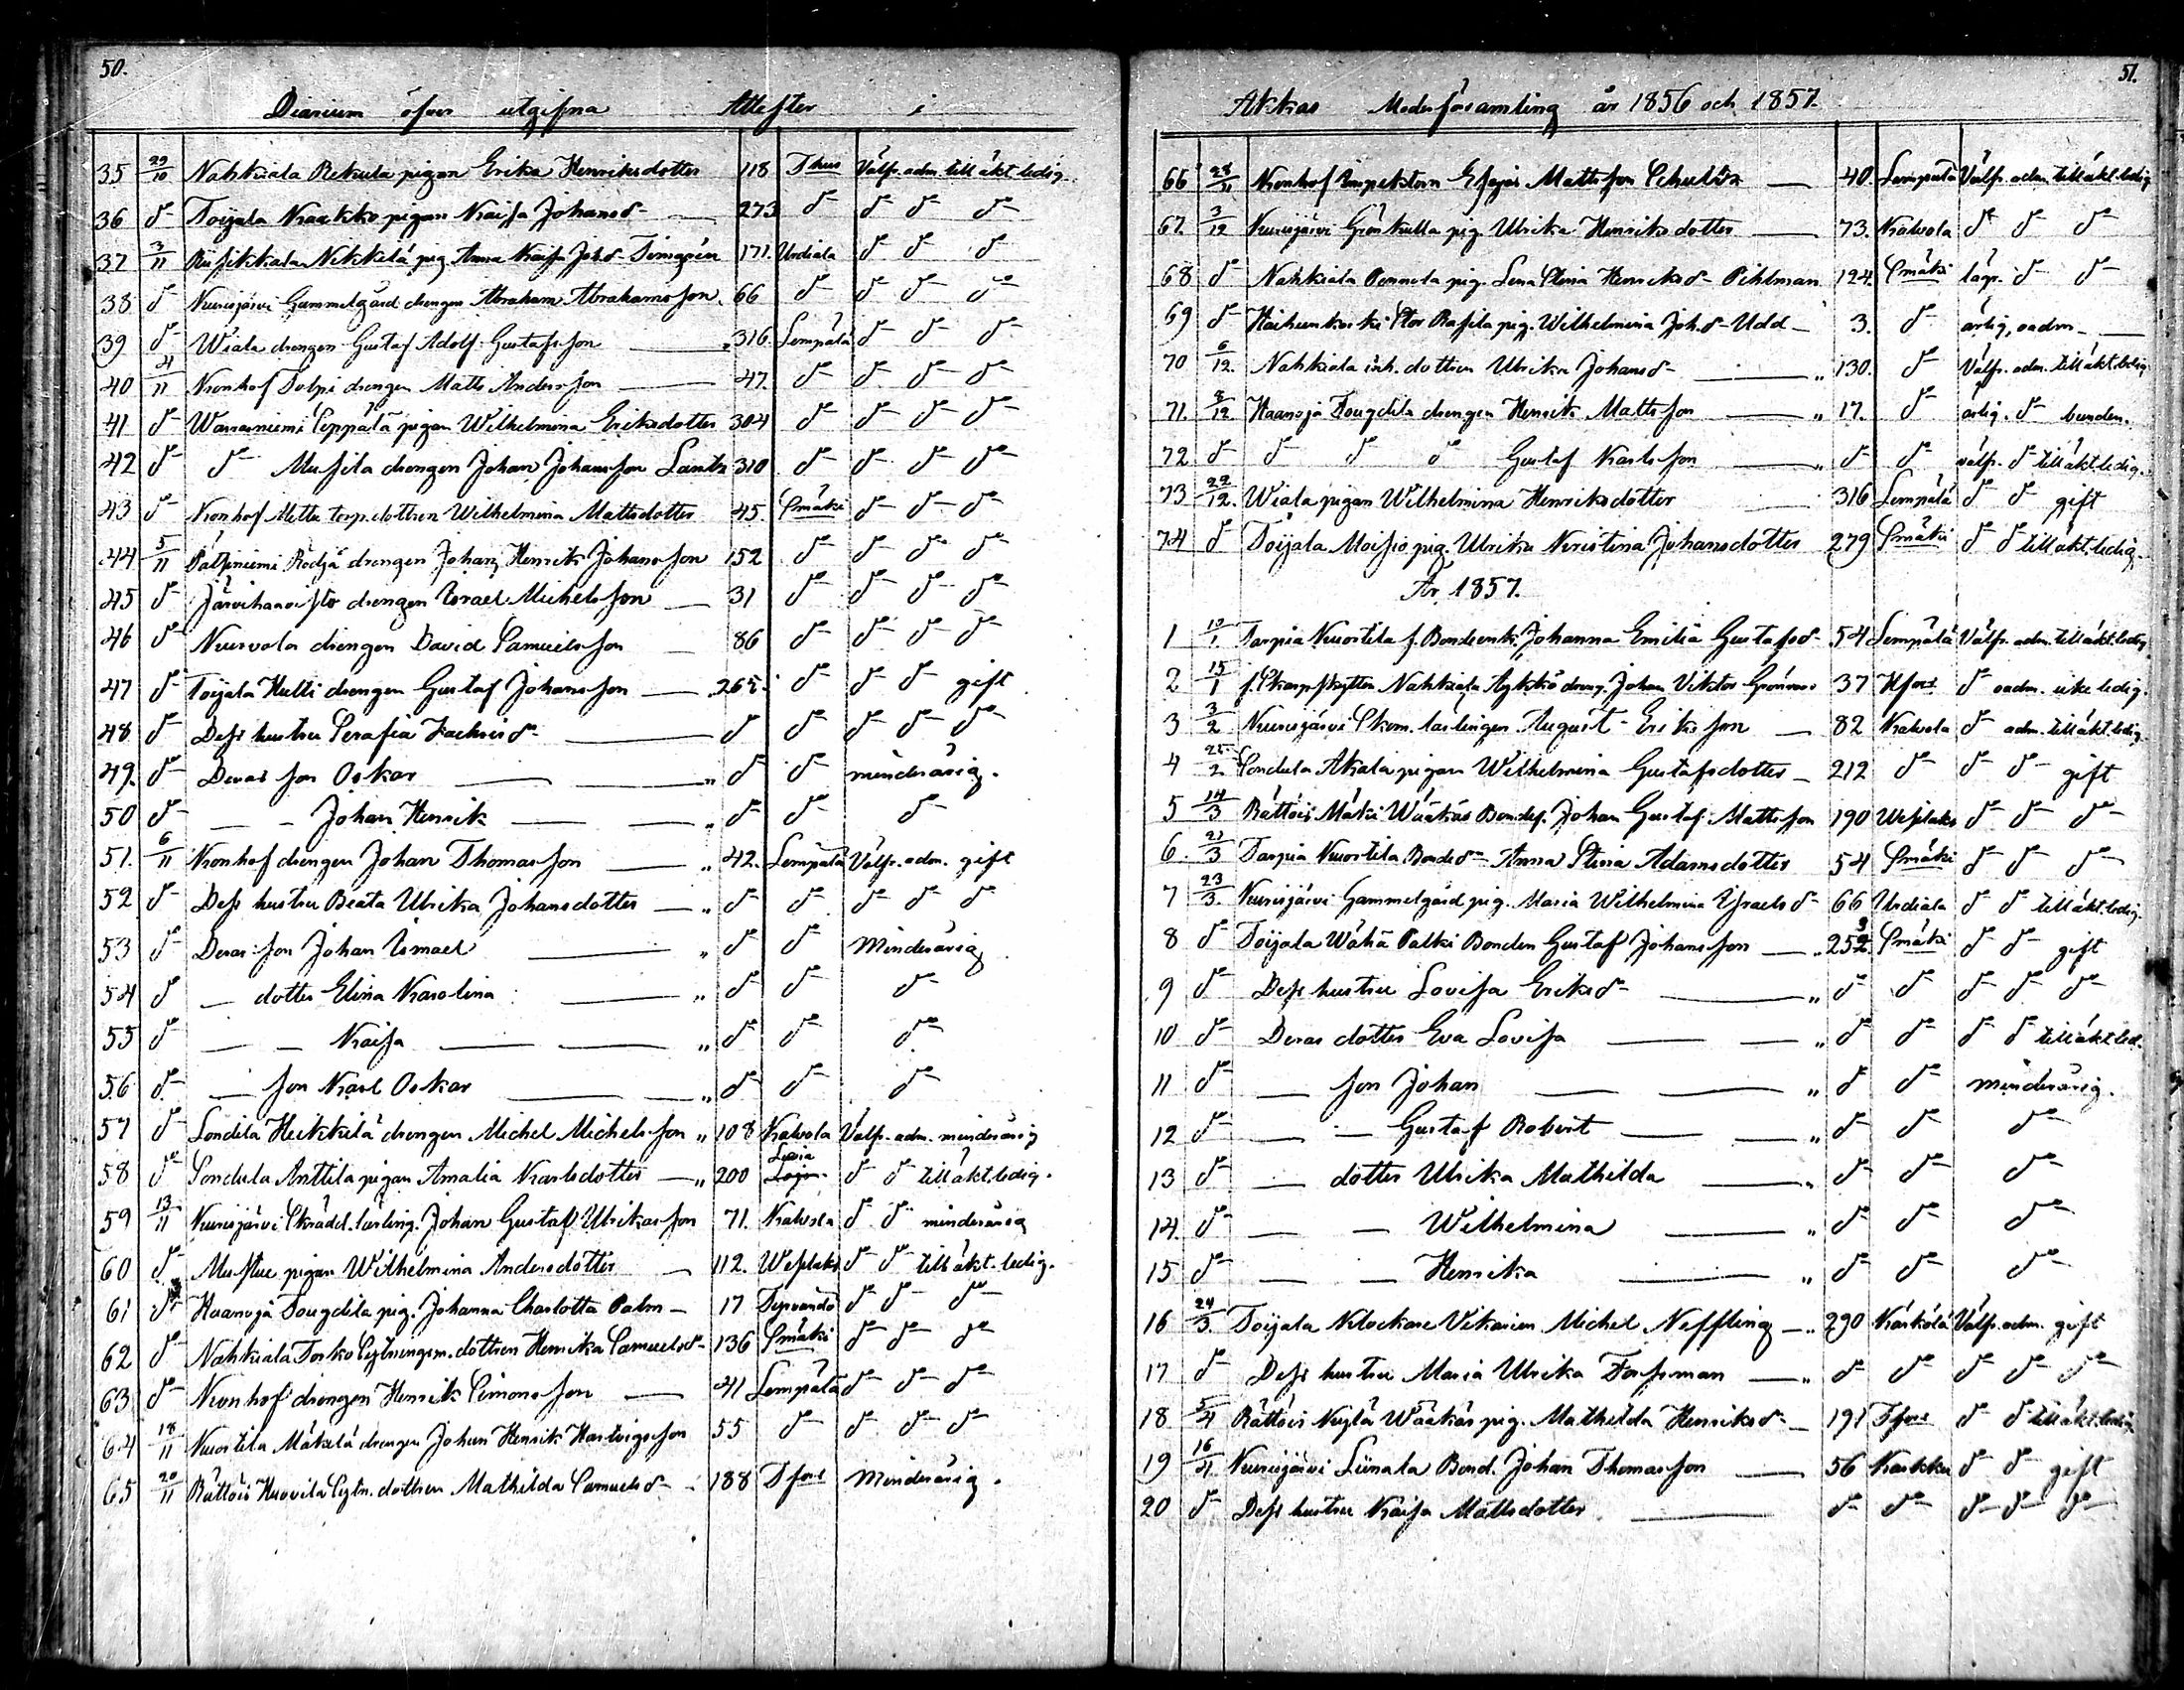 50.
Diarium öfver utgifna Attester i
35 29/10 Nahkiala Rekula pigan Erika Henriksdotter 118 Thus Välfr. adm. till äkt. ledig.
36 d:o Toijala Kaakko pigan Kaisa Johansd:r 273 d:o d:o d:o d:o
37 3/11 Nikkilä pig. Anna Kaisa Joh.d:r 171. Urdiala d:o d:o d:o
38 d:o Kurisjärvi Gammelgård drengen Abraham Abrahamsson 66 d:o d:o d:o d:o
39 d:o Wiala drengen Gustaf Adolf Gustafsson 316. Lempälä d:o d:o d:o
40 4/11 Kronhof Tolpi drengen Matts Andersson 47 d:o d:o d:o d:o
41 d:o Warrasniemi Seppälä pigan Wilhelmina Eriksdotter 304 d:o d:o d:o d:o
42 d:o d:o Musila drengen Johan Johansson Lantz 310 d:o d:o d:o d:o
43 d:o Kronhof Metta torp.dottren Wilhelmina Mattsdotter 45. Smäki d:o d:o d:o
44 5/11 Pälpiniemi drengen Johan Henrik Johansson 152 d:o d:o d:o d:o
45 d:o drengen Israel Michelsson 31 d:o d:o d:o d:o
46 d:o Kurvola drengen David Samuelsson 86 d:o d:o d:o d:o
47 d:o Toijala Hulli drengen Gustaf Johansson 265. d:o d:o d:o gift
48 d:o Dess hustru Serafia Zachrisd:r d:o d:o d:o d:o d:o
49. d:o Deras son Oskar " d:o d:o minderårig.
50 d:o — — Johan Henrik " d:o d:o d:o
51. 6/11 Kronhof drengen Johan Thomasson " 42. Lempälä Välfr. adm. gift
52 d:o Dess hustru Beata Ulrika Johansdotter " d:o d:o d:o d:o d:o
53 d:o Deras son Johan Ismael " d:o d:o Minderårig
54 d:o — dotter Elina Karolina " d:o d:o d:o
55 d:o — — Kaisa " d:o d:o d:o
56 d:o — son Karl Oskar " d:o d:o d:o
57 d:o Sondila Heikkilä drengen Michel Michelsson " 108 Kalvola Välfr. adm. minderårig
58 d:o Sondula Anttila pigan Amalia Karlsdotter " 200 d:o d:o till äkt. ledig.
59 13/11 Kurisjärvi Skrädd. lärling. Johan Gustaf Ulrikasson 71. Kalvola d:o d:o minderårig
60 d:o Mustue pigan Wilhelmina Andersdotter 112. Wesilaks d:o d:o till äkt. ledig.
61 d:o Haanoja Tougdila pig. Johanna Charlotta Palm 17 d:o d:o d:o
62 d:o Nahkiala Torko Sytningsm. dottren Henrika Samuelsd:r 136 Smäki d:o d:o d:o
63 d:o Kronhof drengen Henrik Simonsson 41 Lempälä d:o d:o d:o
64 18/11 Kuortila Mäkelä drengen Johan Henrik Hartvigsson 55 d:o d:o d:o d:o
65 20/11 Rättöis Huovila Sytn. dottren Mathilda Samuelsd:r 188 Tfors Minderårig.
51.
Akkas Moderförsamling år 1856 och 1857.
66 28/11 Kronhof Inspektorn Esajas Mattsson Schultz 40. Lempälä Välfr. adm. till äkt. ledig
67. 3/12 Kurisjärvi Gröskulla pig. Ulrika Henriksdotter 73. Kalvola d:o d:o d:o
68 d:o Nahkiala Pennola pig. Lena Stina Henriksd:r Pihlman 124. Smäki lagr. d:o d:o
69 d:o Haihunkoski Stor Rasila pig. Wilhelmina Joh.d:r Udd 3. d:o ärlig, oadm.
70 6/12. Nahkiala inh. dottren Ulrika Johansd:r " 130. d:o Välfr. adm. till äkt. ledig
71. 8/12 Haanoja Tougdila drengen Henrik Mattsson " 17. d:o ärlig. d:o bunden.
72 d:o d:o d:o d:o Gustaf Karlsson " d:o d:o välfr. d:o till äkt. ledig.
73 22/12. Wiala pigan Wilhelmina Henriksdotter 316 Lempälä d:o d:o gift
74 d:o Toijala Moisio pig. Ulrika Kristina Johansdotter 279 Smäki d:o d:o till äkt. ledig.
År 1857.
1 10/1. Tarpia Kuortila f. Bondeenk. Johanna Emilia Gustafsd:r 54 Lempälä Välfr. adm. till äkt. ledig
2 15/1 f. Skarpskytten Nahkiala Äykkö dreng. Johan Viktor 37 Hfors d:o oadm. icke ledig.
3 3/2 Kurisjärvi Skom. lärlingen August Eriksson 82 Kalvola d:o adm. till äkt. ledig
4 25/2 Sondula Akala pigan Wilhelmina Gustafsdotter 212 d:o d:o d:o gift
5 14/3 Rättöis Mäki Wäätäs Bondes. Johan Gustaf Mattsson 190 Wesilaks d:o d:o d:o
6. 21/3 Tarpia Kuortila Bonded:r Anna Stina Adamsdotter 54 Smäki d:o d:o d:o
7 23/3. Kurisjärvi Gammelgård pig. Maria Wilhelmina Israelsd:r 66 Urdiala d:o d:o till äkt. ledig.
8 d:o Toijala Wähä Palki Bonden Gustaf Johansson 253. Smäki d:o d:o gift
9 d:o Dess hustru Lovisa Eriksd:r " d:o d:o d:o d:o d:o
10 d:o Deras dotter Eva Lovisa " d:o d:o d:o d:o till äkt. led.
11 d:o — son Johan " d:o d:o minderårig.
12 d:o — — Gustaf Robert " d:o d:o d:o
13 d:o — dotter Ulrika Mathilda " d:o d:o d:o
14. d:o — — Wilhelmina " d:o d:o d:o
15 d:o — — Henrika " d:o d:o d:o
16 24/3. Toijala Klockare Vikarien Michel Neffling 290 Kärkölä Välfr. adm. gift
17 d:o Dess hustru Maria Ulrika Forsman " d:o d:o d:o d:o d:o
18 5/4 Rättöis Nuglä Wäätäs pig. Mathilda Henriksd:r 191 Tfors d:o d:o till äkt. ledig
19 16/4 Kurisjärvi Liinala Bond. Johan Thomasson 56 Karkku d:o d:o gift
20 d:o Dess hustru Kaisa Mattsdotter d:o d:o d:o d:o d:o